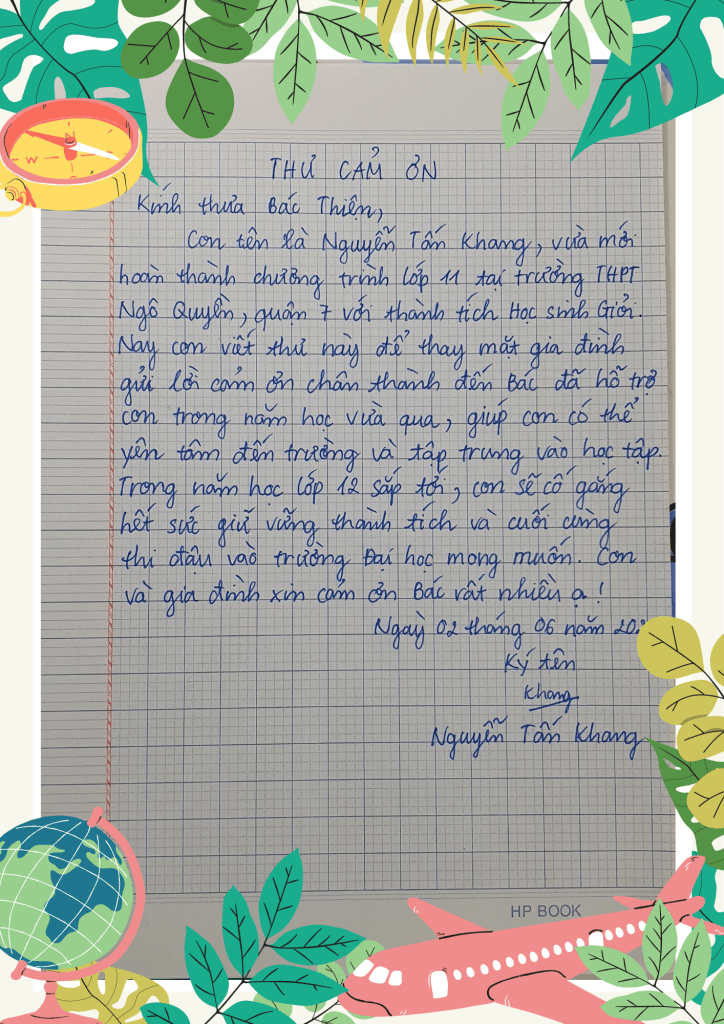 THƯ CẢM ƠN
Kính thưa Bác Thiện,
Con tên là Nguyễn Tấn Khang, vừa mới
hoàn thành chương trình lớp 11 tại trường THPT
Ngô Quyền, quận 7 với thành tích Học sinh Giỏi.
Nay con viết thư này để thay mặt gia đình
gửi lời cảm ơn chân thành đến Bác đã hỗ trợ
con trong năm học vừa qua, giúp con có thể
yên tâm đến trường và tập trung vào học tập.
Trong năm học lớp 12 sắp tới, con sẽ cố gắng
hết sức giữ vững thành tích và cuối cùng
thi đậu vào trường Đại học mong muốn. Con
và gia đình xin cám ơn Bác rất nhiều ạ!
Ngày 02 tháng 06 năm
Ký tên
Khang
Nguyễn Tấn Khang
HP BOOK
N
W